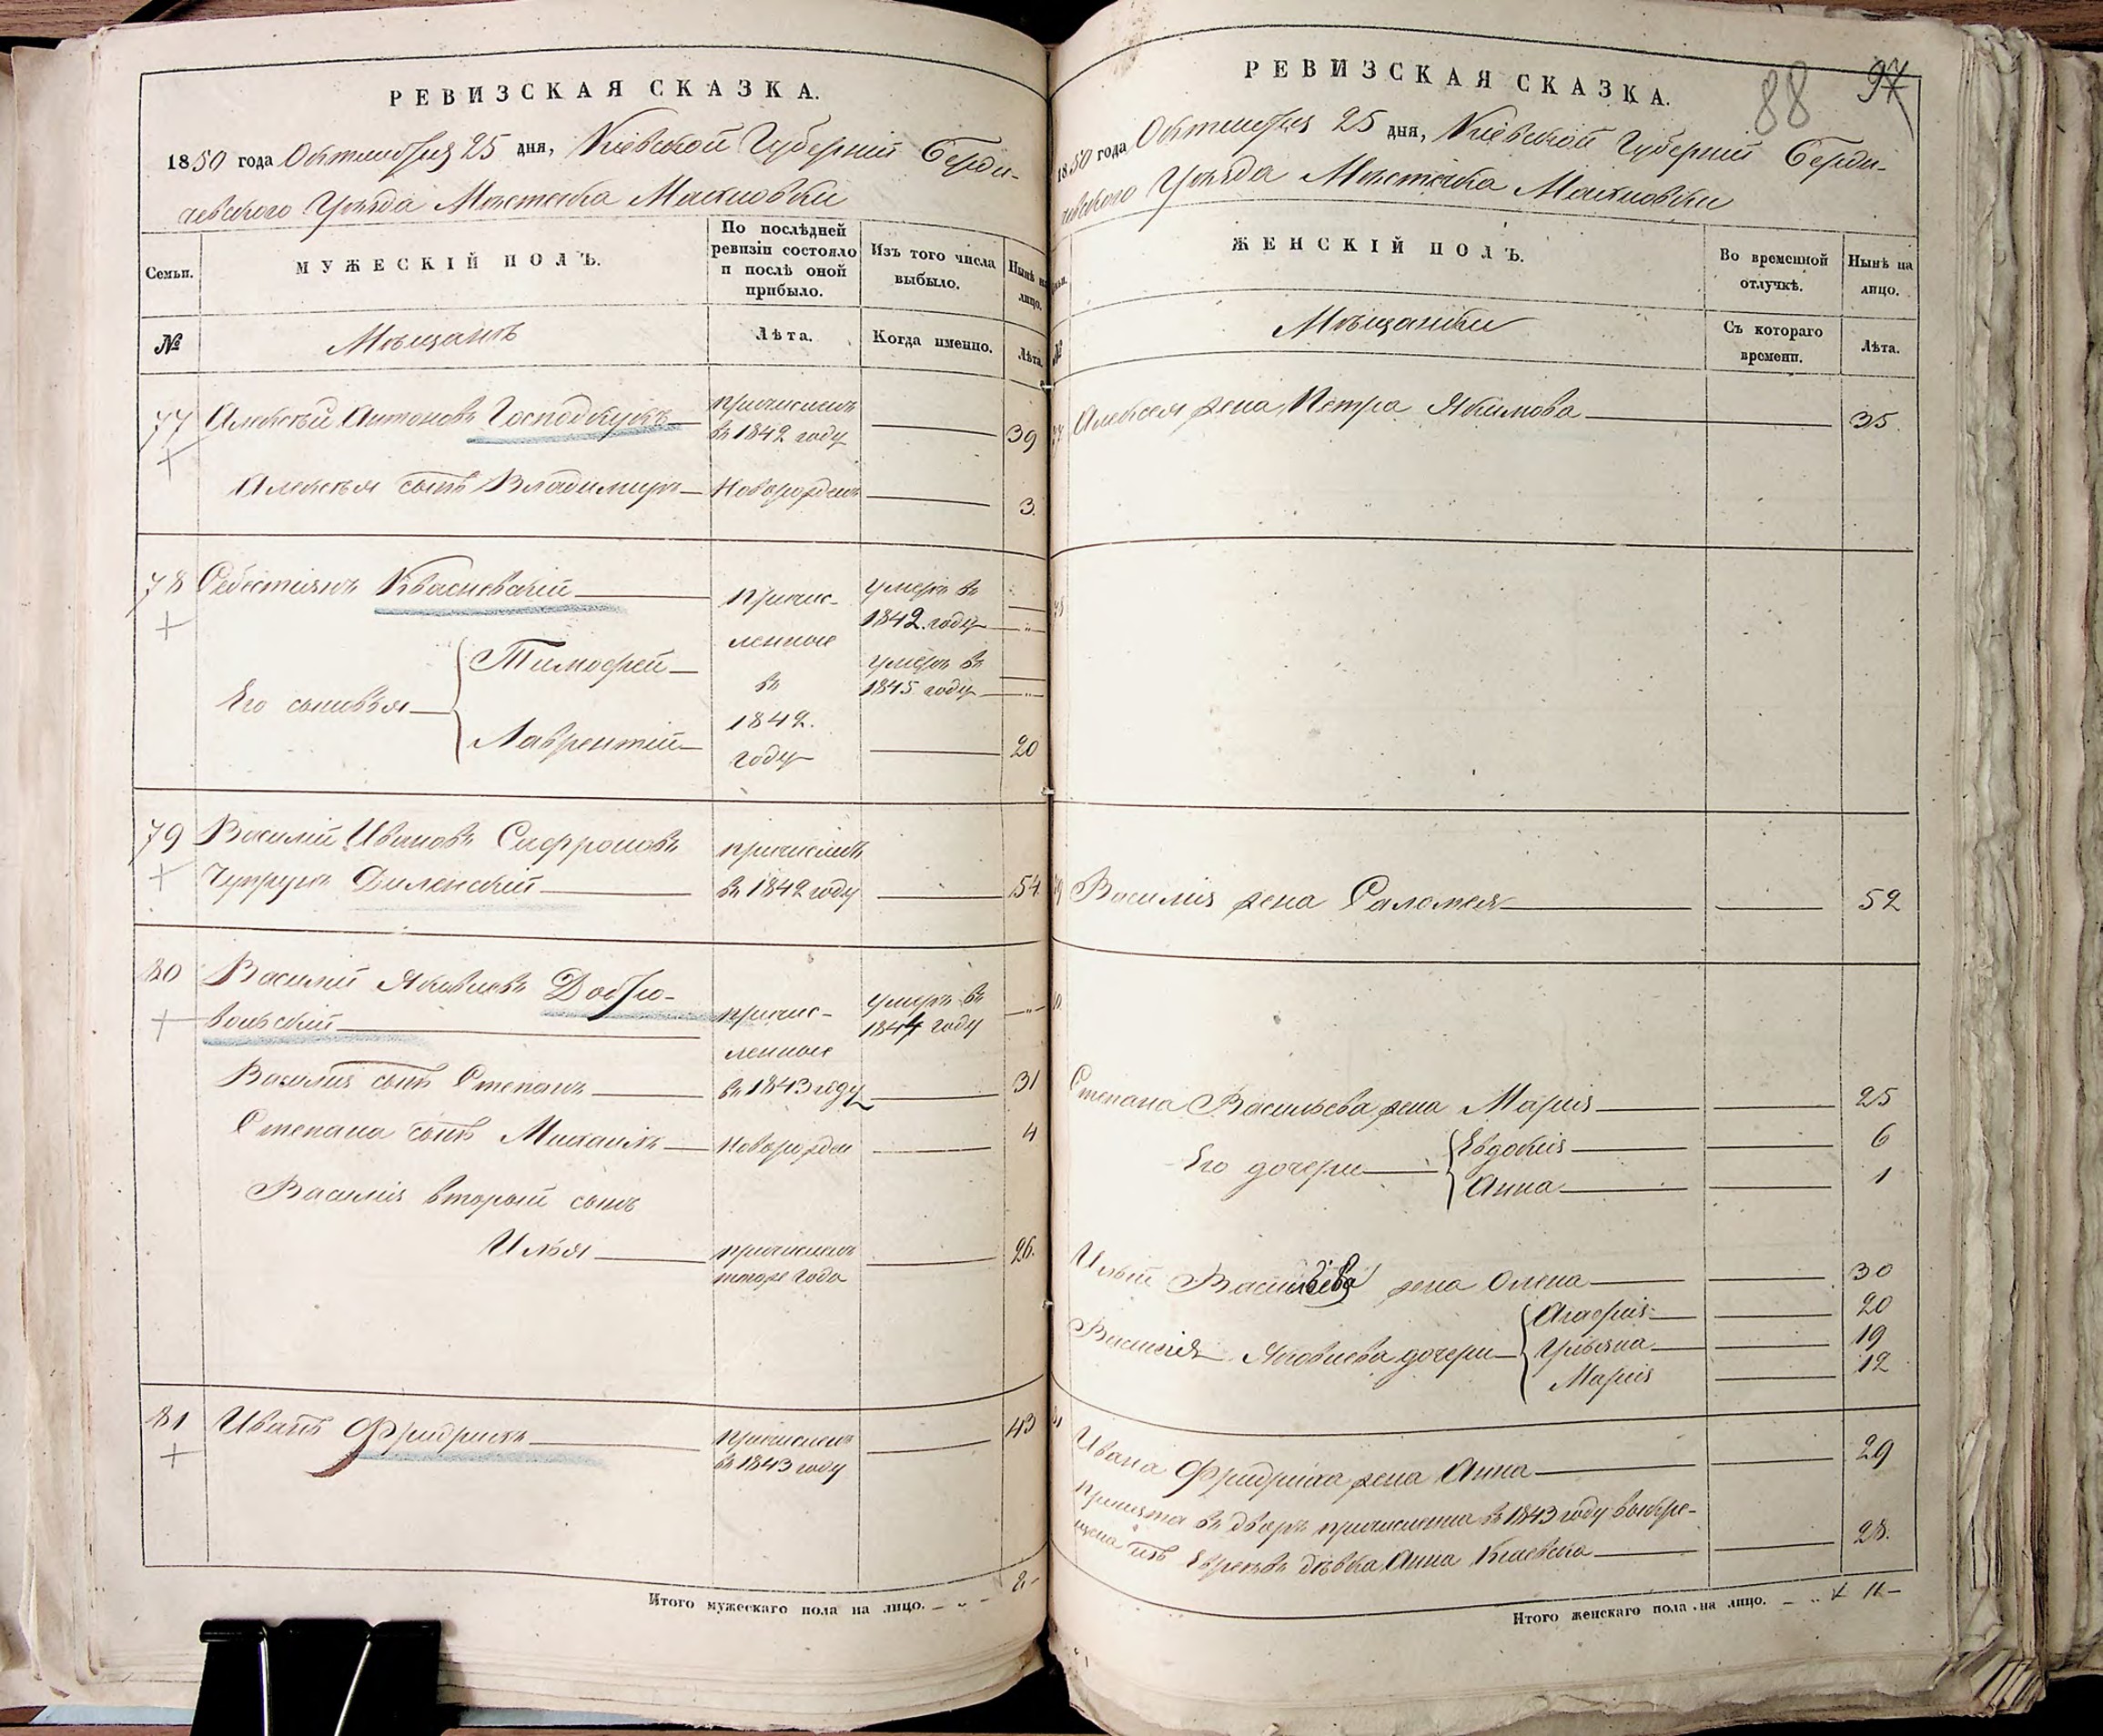 РЕВИЗСКАЯ СКАЗКА.
1850 года Октября 25 дня, Кіевской Губерніи Берди-
чевского Уѣзда Мѣстечка Махновки
Семьи.
МУЖЕСКІЙ ПОЛЪ.
По послѣдней
ревизіи состояло
и послѣ оной
прибыло.
Изъ того числа
выбыло.
Нынѣ на
лицо.
№
Мѣщанъ
Лѣта.
Когда именно.
Лѣта.
77 Алексѣй Антоновъ Господкинъ причисленъ
въ 1842 году 39
Алексѣя сынъ Владимиръ Новорожденъ 3.
78 Себестіянъ Квасневскій причис- умеръ въ
1842 году
Его сыновья Тимофей ленные умеръ въ
въ 1845 году
Лаврентій 1842. 20
году
79 Василій Ивановъ Сафроновъ причисленъ
Чупрунъ Диленскій въ 1842 году 54
80 Василій Яковлевъ Добро- умеръ въ
вольскій причис- 1844 году
ленные
Василія сынъ Степанъ въ 1843 году 31
Степана сынъ Михаилъ Новорожден 4
Василія второй сынъ
Илья причисленъ 26.
тогоже года
81 Иванъ Фридрихъ причисленъ 43
въ 1843 году
Итого мужескаго пола на лицо. 8
88 97
РЕВИЗСКАЯ СКАЗКА.
1850 года Октября 25 дня, Кіевской Губерніи Берди-
чевского Уѣзда Мѣстечка Махновки
ЖЕНСКІЙ ПОЛЪ.
Во временной
отлучкѣ.
Нынѣ на
лицо.
№
Мѣщанки
Съ котораго
времени.
Лѣта.
77 Алексея жена Петра Якимова 35.
78
79 Василія жена Саломея 52
80
Степана Васильева жена Марія 25
Его дочери Евдокія 6
Анна 1
Ильи Васильева жена Олена 30
Василія Яковлева дочери Агафія 20
Ульяна 19
Марія 12
81
Ивана Фридриха жена Анна 29
принята въ дворъ причисленна въ 1843 году выкре-
щена изъ Евреевъ дѣвка Анна Киевска 28.
Итого женскаго пола на лицо. 11